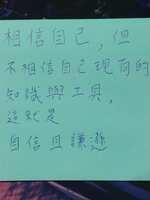 相信自己，但
不相信自己現有的
知識與工具，
這就是
自信且謙遜